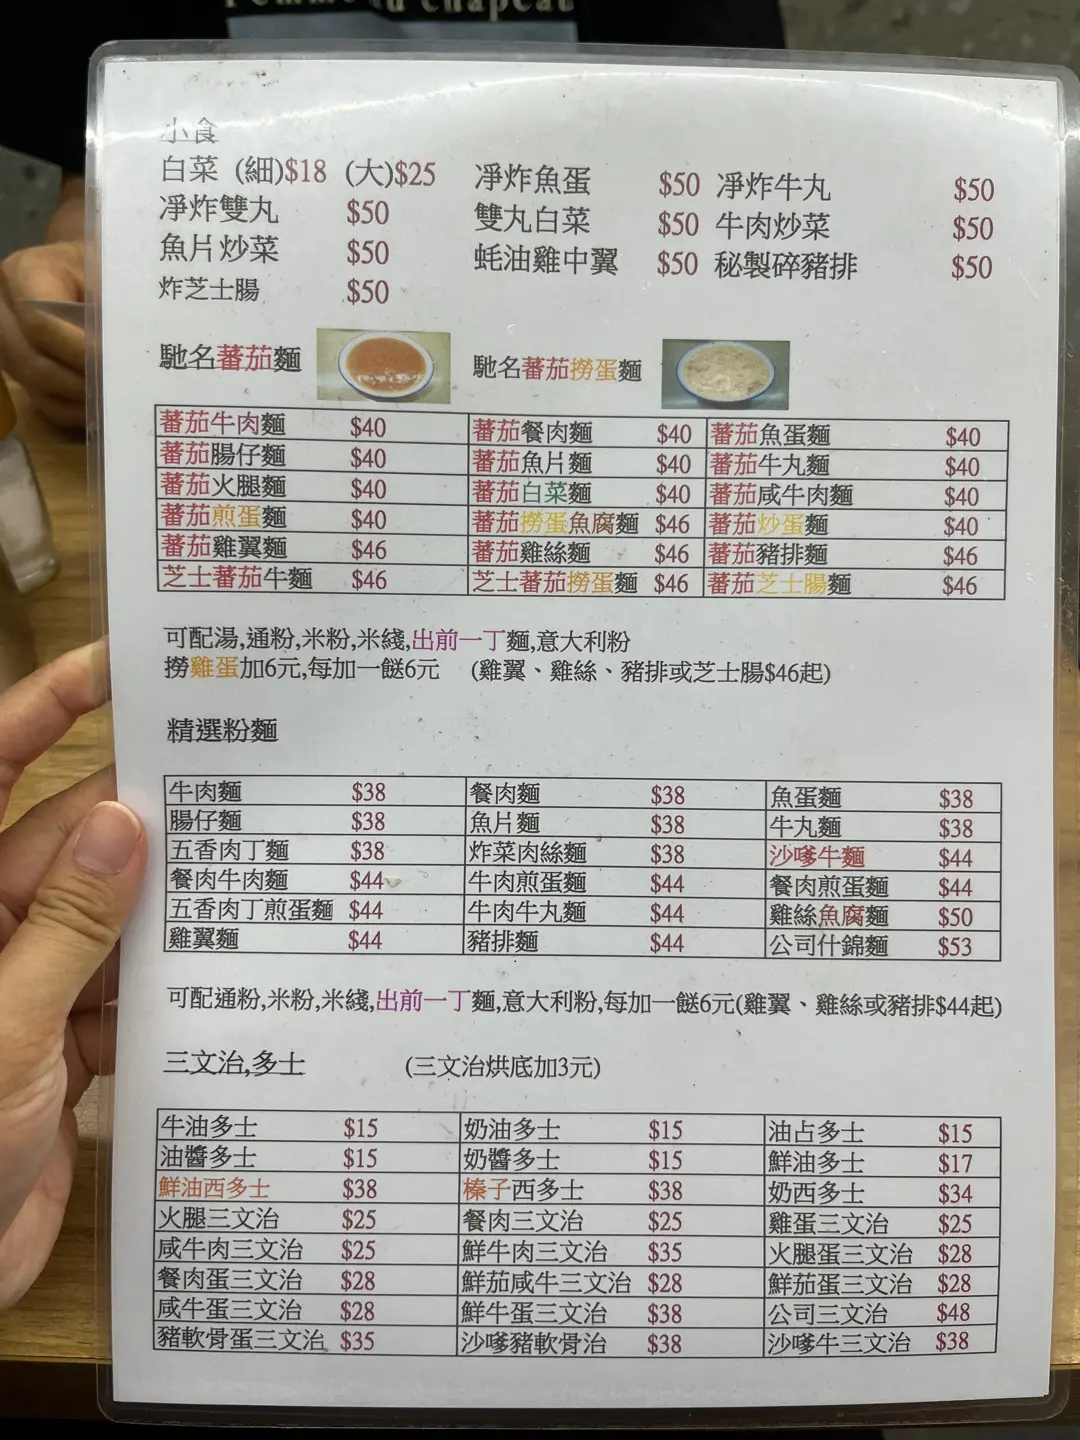 小食
白菜 (細)$18 (大)$25 凈炸魚蛋 $50 凈炸牛丸 $50
凈炸雙丸 $50 雙丸白菜 $50 牛肉炒菜 $50
魚片炒菜 $50 蚝油雞中翼 $50 秘製碎豬排 $50
炸芝士腸 $50
馳名蕃茄麵 馳名蕃茄撈蛋麵
蕃茄牛肉麵 $40 蕃茄餐肉麵 $40 蕃茄魚蛋麵 $40
蕃茄腸仔麵 $40 蕃茄魚片麵 $40 蕃茄牛丸麵 $40
蕃茄火腿麵 $40 蕃茄白菜麵 $40 蕃茄咸牛肉麵 $40
蕃茄煎蛋麵 $40 蕃茄撈蛋魚腐麵 $46 蕃茄炒蛋麵 $40
蕃茄雞翼麵 $46 蕃茄雞絲麵 $46 蕃茄豬排麵 $46
芝士蕃茄牛麵 $46 芝士蕃茄撈蛋麵 $46 蕃茄芝士腸麵 $46
可配湯,通粉,米粉,米綫,出前一丁麵,意大利粉
撈雞蛋加6元,每加一餸6元 (雞翼、雞絲、豬排或芝士腸$46起)
精選粉麵
牛肉麵 $38 餐肉麵 $38 魚蛋麵 $38
腸仔麵 $38 魚片麵 $38 牛丸麵 $38
五香肉丁麵 $38 炸菜肉絲麵 $38 沙嗲牛麵 $44
餐肉牛肉麵 $44 牛肉煎蛋麵 $44 餐肉煎蛋麵 $44
五香肉丁煎蛋麵 $44 牛肉牛丸麵 $44 雞絲魚腐麵 $50
雞翼麵 $44 豬排麵 $44 公司什錦麵 $53
可配通粉,米粉,米綫,出前一丁麵,意大利粉,每加一餸6元(雞翼、雞絲或豬排$44起)
三文治,多士 (三文治烘底加3元)
牛油多士 $15 奶油多士 $15 油占多士 $15
油醬多士 $15 奶醬多士 $15 鮮油多士 $17
鮮油西多士 $38 榛子西多士 $38 奶西多士 $34
火腿三文治 $25 餐肉三文治 $25 雞蛋三文治 $25
咸牛肉三文治 $25 鮮牛肉三文治 $35 火腿蛋三文治 $28
餐肉蛋三文治 $28 鮮茄咸牛三文治 $28 鮮茄蛋三文治 $28
咸牛蛋三文治 $28 鮮牛蛋三文治 $38 公司三文治 $48
豬軟骨蛋三文治 $35 沙嗲豬軟骨治 $38 沙嗲牛三文治 $38